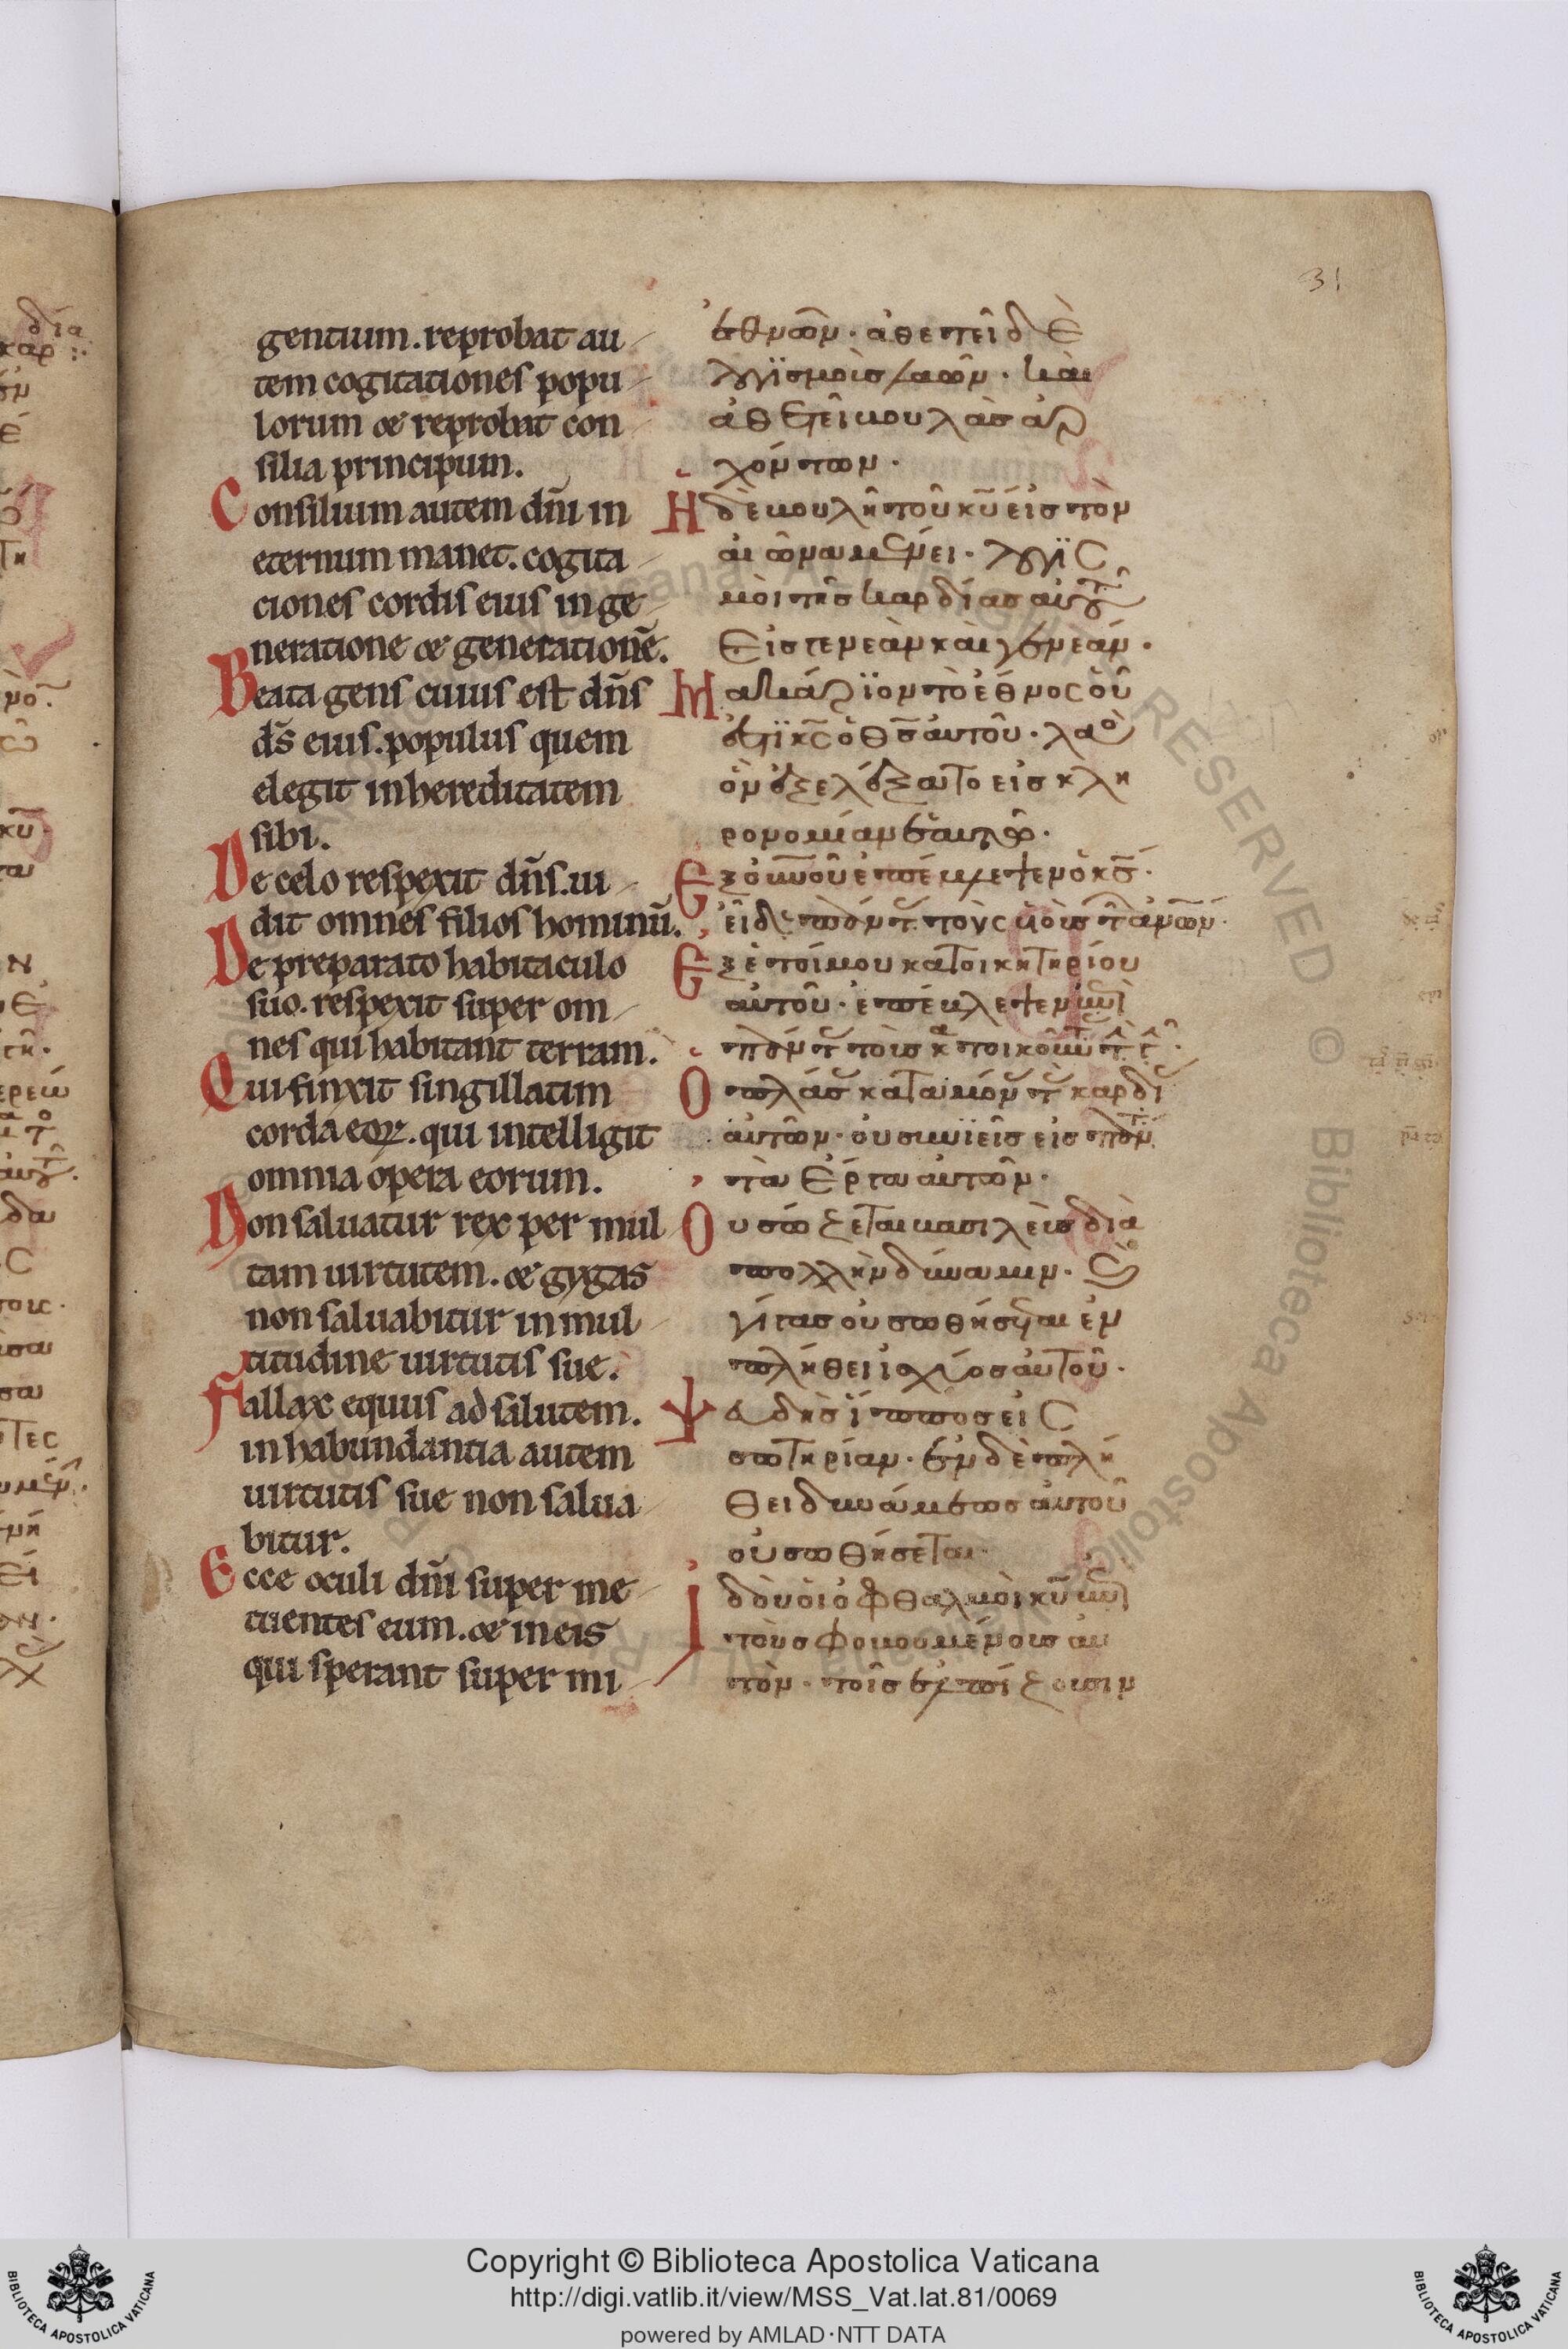 31
gentium. reprobat au
tem cogitationes popu
lorum & reprobat con
silia principum.
Consilium autem dñi in
eternum manet. cogita
ciones cordis eius in ge
neratione & generationē.
Beata gens cuius est dñs
ds̄ eius. populus quem
elegit in hereditatem
sibi.
De celo respexit dñs. ui
dit omnes filios hominū.
De preparato habitaculo
suo. respexit super om
nes qui habitant terram.
Qui finxit singillatim
corda eoꝝ. qui intelligit
omnia opera eorum.
Non saluatur rex per mul
tam uirtutem. & gygas
non saluabitur in mul
titudine uirtutis sue.
Fallax equus ad salutem.
in habundantia autem
uirtutis sue non salua
bitur.
Ecce oculi dñi super me
tuentes eum. & in eis
qui sperant super mi
ἐθνῶν· ἀθετεῖ δὲ
λογϊσμοὶς λαῶν· καὶ
ἀθετεῖ βουλὰς ἀρ
χόντων·
Ἡ δὲ βουλὴ τοῦ κ̅υ̅ εἰς τὸν
αἰῶνα μένει· λογϊς
μοὶ τῆς καρδίας αὐτοῦ
εἰς γενεὰν καὶ γενεάν·
Μακάρϊον τὸ ἔθνος οὗ
ἐστϊ κ̅ς̅ ὁ θ̅ς̅ αὐτοῦ· λαὸ
ὃν ἐξελέξατο εἰς κλη
ρονομίαν ἑαυτῷ·
Ἐξ οὐνοῦ ἐπέβλεψεν ὁ κ̅ς̅·
Ἐξ ἑτοίμου κατοικητηρίου
αὐτοῦ· ἐπέβλεψεν ἐπὶ
αὐτῶν· ὁ συνϊεῖς εἰς
τὰ ἔργα αὐτῶν·
Οὐ σώζεται βασιλεὺς διὰ
πολλὴν δύναμιν·
γίγας οὐ σωθήσεται ἐν
πλήθει ἰσχύος αὐτοῦ·
Ψαδὴς ἵππος εἰς
σωτηρίαν· ἐν δὲ πλή
θει δυνάμεως αὐτοῦ
οὐ σωθήσεται·
Ἰδδοὺ οἱ ὀφθαλμοὶ κ̅υ̅ ἐπὶ
τοὺς φοβουμένους αὐ
τὸν· τοῖς ἐλπίζουσιν
Copyright © Biblioteca Apostolica Vaticana
http://digi.vatlib.it/view/MSS_Vat.lat.81/0069
powered by AMLAD·NTT DATA
BIBLIOTECA APOSTOLICA VATICANA
BIBLIOTECA APOSTOLICA VATICANA